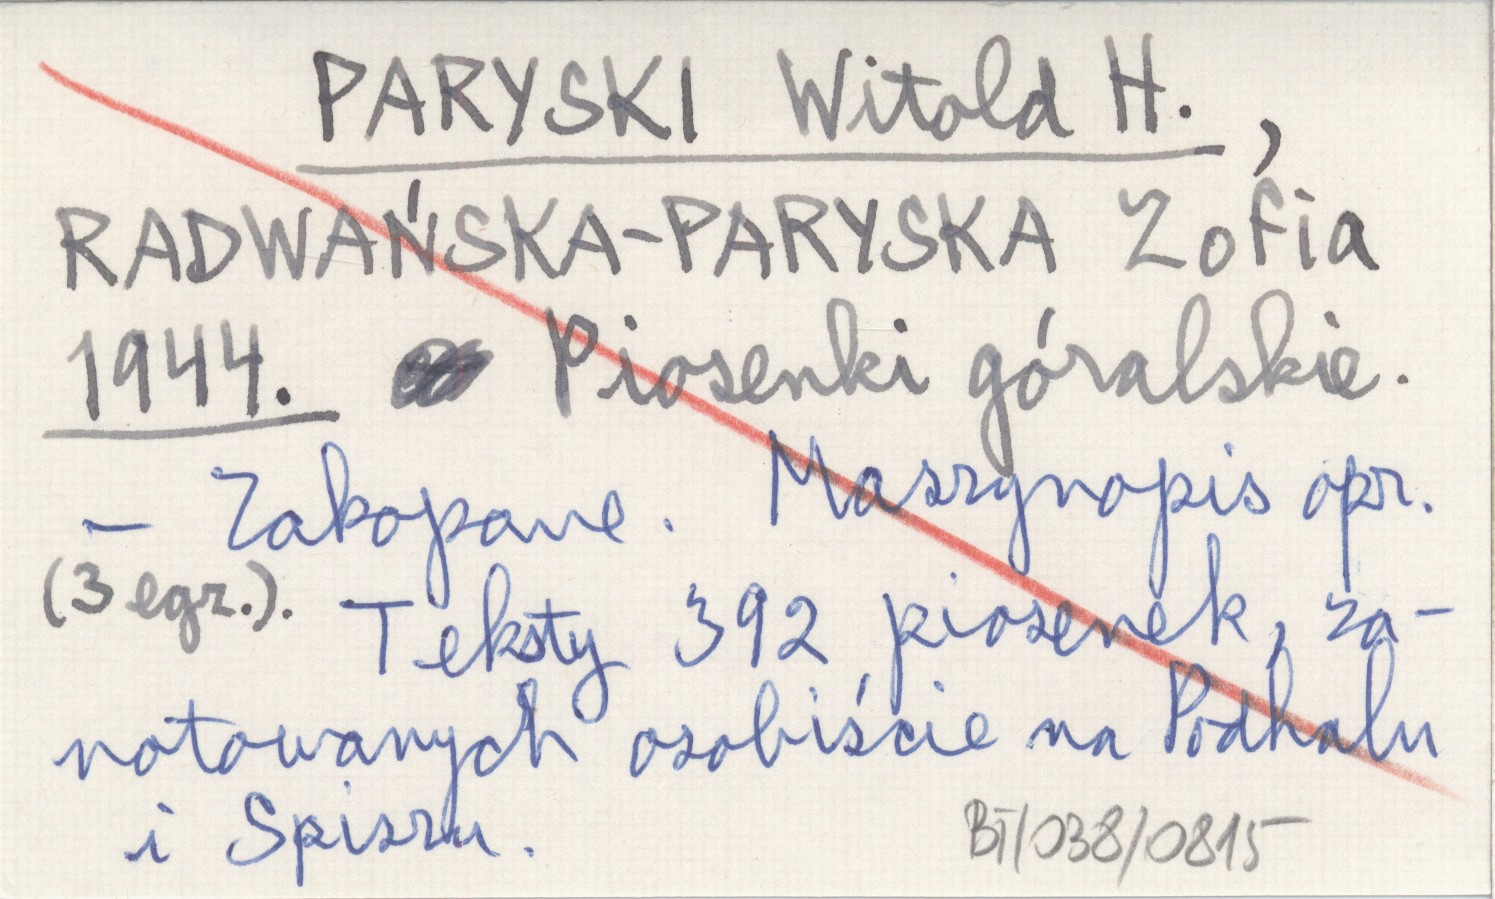 PARYSKI Witold H.,
RADWAŃSKA-PARYSKA Zofia
1944. Piosenki góralskie.
– Zakopane. Maszynopis opr.
(3 egz.). Teksty 392 piosenek, za-
notowanych osobiście na Podhalu
i Spiszu.
BT/038/0815